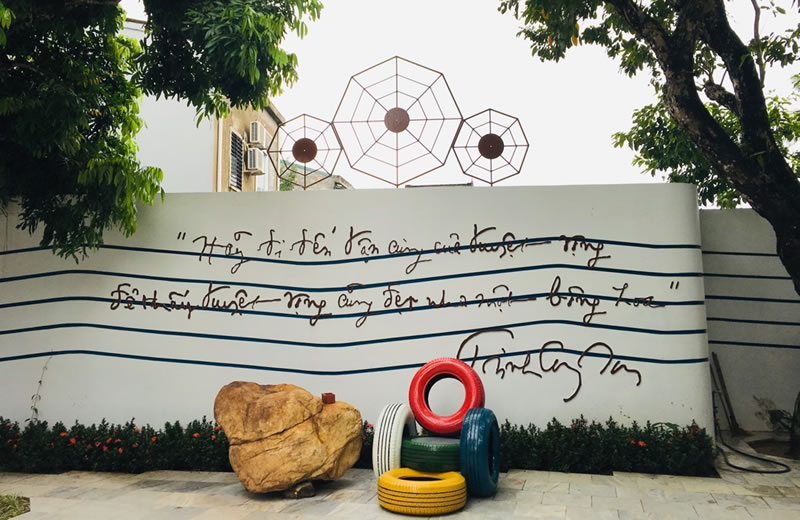 "Hãy đi đến tận cùng của tuyệt vọng
để thấy tuyệt vọng cũng đẹp như một bông hoa"
Trịnh Công Sơn